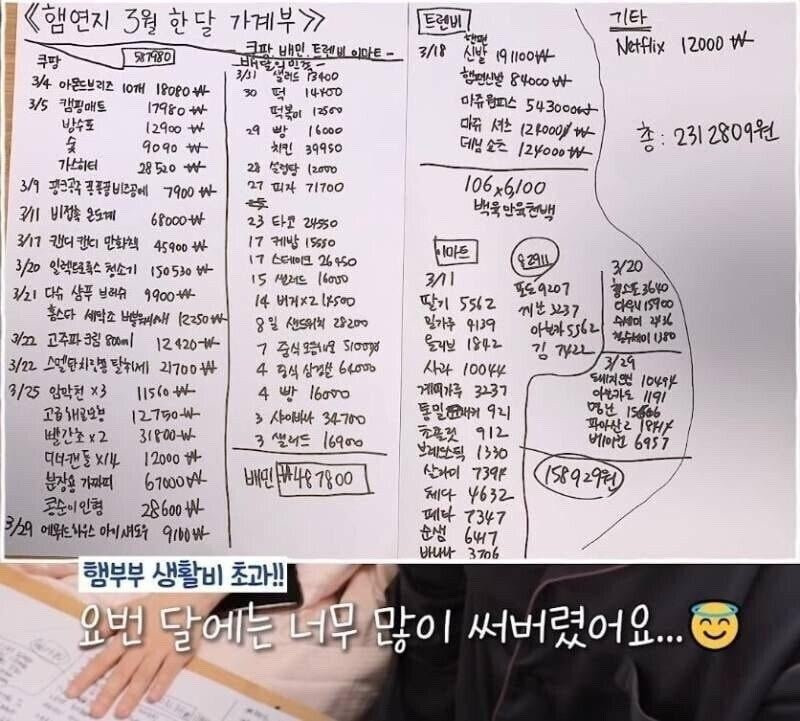 《햄연지 3월 한달 가계부》
쿠팡 587980
3/4 아몬드브리즈 10개 18080₩
3/5 캠핑매트 17980₩
방수포 12900₩
숯 9090₩
가스히터 28520₩
3/9 7900₩
3/11 비접촉 온도계 68000₩
3/17 캔디 캔디 만화책 45900₩
3/20 일렉트로룩스 청소기 150530₩
3/21 다슈 샴푸 브러쉬 9900₩
홈스타 세탁조 12250₩
3/22 고주파 크림 800ml 12420₩
3/22 스멜 탈취제 21700₩
3/25 암막천 ×3 11560₩
고급해로모봉 12750₩
빨간초 ×2 31800₩
디너캔들 ×14 12000₩
분장용 67000₩
콩순이 인형 28600₩
3/29 에뛰드하우스 아이섀도우 9100₩
쿠팡 배민, 트렌비 이마트 -
배달의민족 -
3/31 샐러드 13400
30 떡 14400
떡볶이 12500
29 빵 16000
치킨 39950
28 설렁탕 12000
27 피자 71700
23 타코 24550
17 케밥 15550
17 스테이크 26950
15 샐러드 16000
14 버거×2 14500
8일 샌드위치 28200
7 중식 51000
4 중식 삼겹살 64000
4 빵 16000
3 사이바바 34700
3 샐러드 16900
배민 ₩487800
트렌비
3/18 햄편 신발 191100₩
햄편신발 84000₩
마쥬원피스 543000₩
마쥬 셔츠 124000₩
데님 쇼츠 124000₩
106×6,100
백육만육천백
이마트
3/11
딸기 5562
밀가루 4139
올리브 1842
사과 10044
계피가루 3237
통밀 921
초콜릿 912
브레드스틱 1330
살라미 7394
체다 4632
페타 7347
순생 6417
바나나 3706
포도 9207
3237
아보카도 5562
김 7422
3/20
3640
다우니 15900
수세미 2436
1380
3/29
10494
아보카도 1191
명란 15606
파마산2 18414
베이컨 6957
158929원
기타
Netflix 12000₩
총 : 2312809원
햄부부 생활비 초과!!
요번 달에는 너무 많이 써버렸어요...